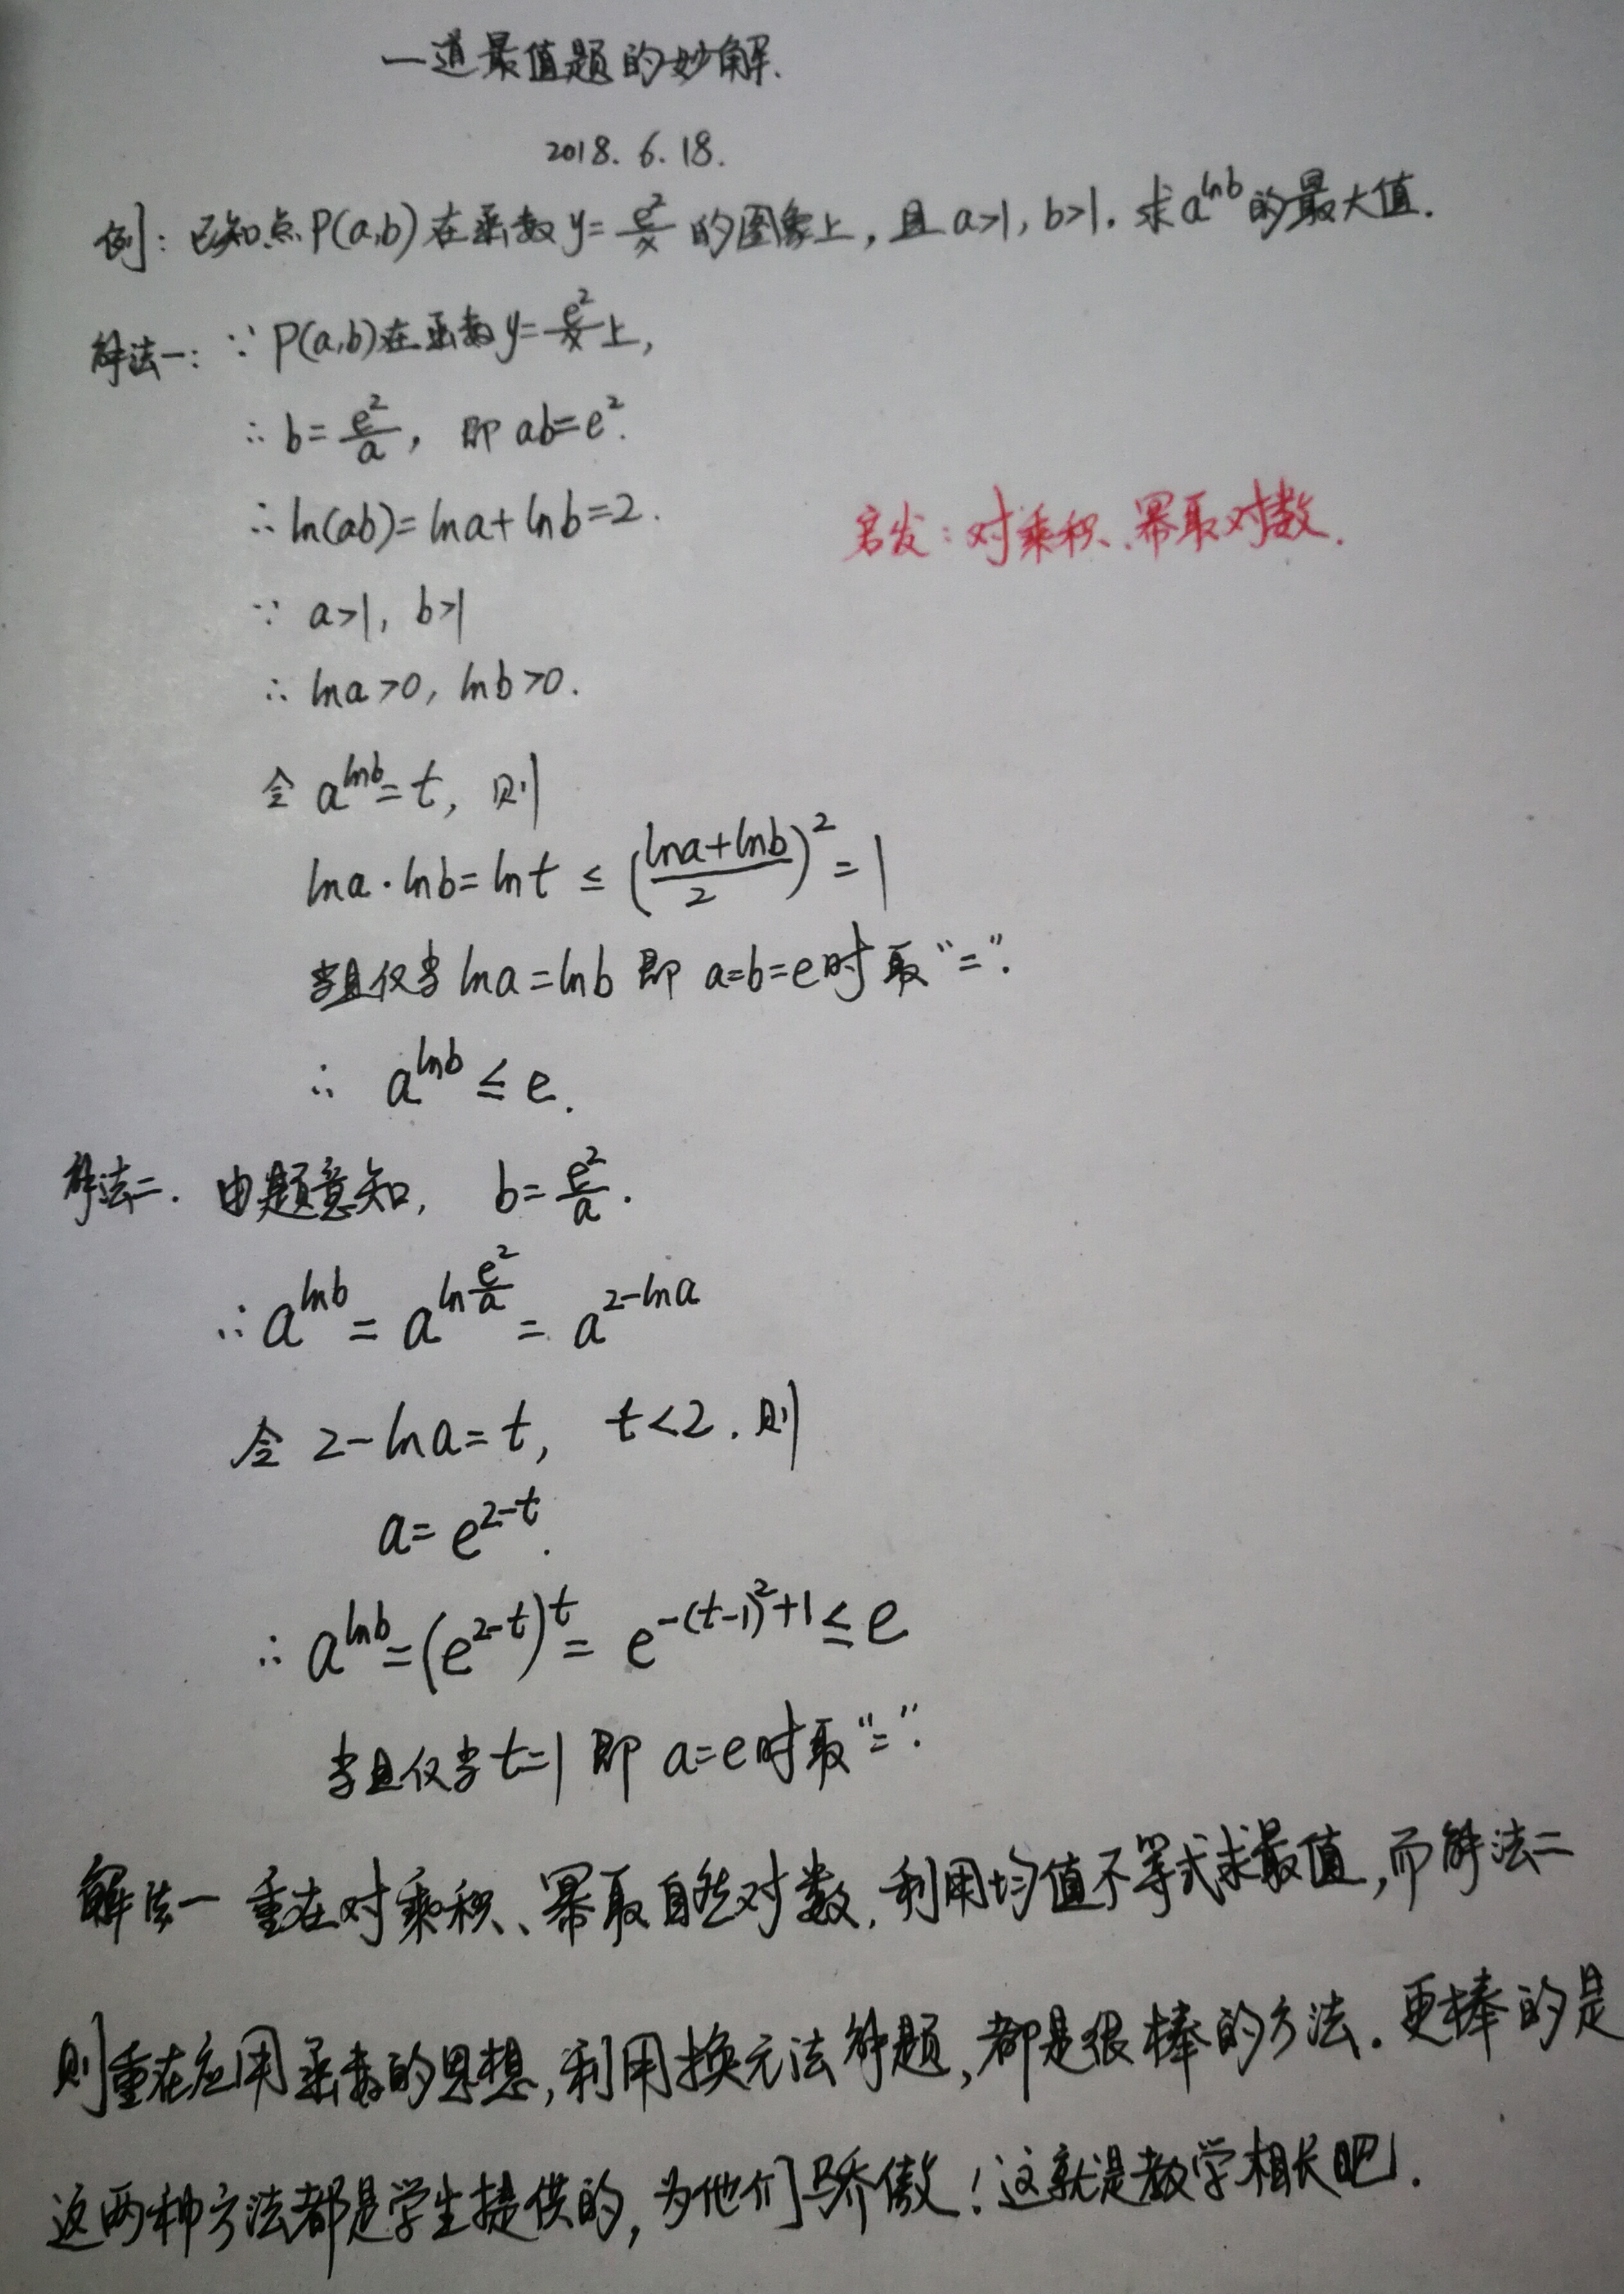 一道最值题的妙解.
2018. 6. 18.
例: 已知点P(a,b)在函数y=e²/x的图象上, 且a>1, b>1. 求a^{lnb}的最大值.
解法一: ∵P(a,b)在函数y=e²/x上,
∴b=e²/a, 即ab=e².
∴ln(ab)=lna+lnb=2.
启发: 对乘积、幂取对数.
∵ a>1, b>1
∴ lna>0, lnb>0.
令 a^{lnb}=t, 则
lna·lnb=lnt ≤ ((lna+lnb)/2)²=1
当且仅当lna=lnb 即 a=b=e时取“=”.
∴ a^{lnb} ≤ e.
解法二. 由题意知, b=e²/a.
∴a^{lnb} = a^{ln e²/a} = a^{2-lna}
令 2-lna=t, t<2. 则
a=e^{2-t}.
∴a^{lnb}=(e^{2-t})^t = e^{-(t-1)²+1} ≤ e
当且仅当t=1 即 a=e时取“=”.
解法一重在对乘积、幂取自然对数, 利用均值不等式求最值, 而解法二
则重在应用函数的思想, 利用换元法解题, 都是很棒的方法. 更棒的是
这两种方法都是学生提供的, 为他们骄傲! 这就是教学相长吧.